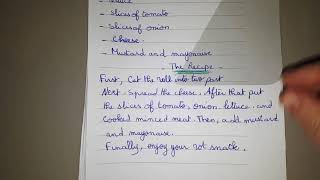 - Slices of tomato
- Slices of onion
- Cheese.
- Mustard and mayonaise
- The Recipe -
First, Cut the roll into two part
Next - Spread the cheese, After that put
the slices of tomato, onion, lettuce, and
Cooked minced meat. Then, add mustard
and mayonaise.
Finally, enjoy your hot snack.